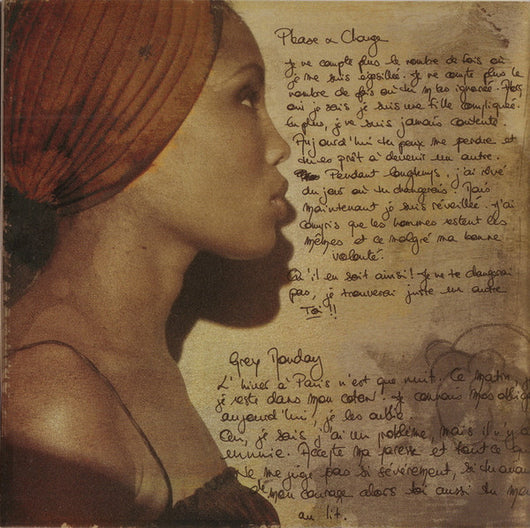 Please a Change
Je ne compte plus le nombre de fois où
je me suis égosillée. Je ne compte plus le
nombre de fois où tu m'as ignorée. Alors
oui je sais je suis une fille compliquée.
En plus, je ne suis jamais contente.
Aujourd'hui tu peux me perdre et
tu es prêt à devenir un autre.
Pendant longtemps, j'ai rêvé
du jour où tu changerais. Mais
maintenant je suis réveillée. J'ai
compris que les hommes restent les
mêmes et ce malgré ma bonne
volonté.
Qu'il en soit ainsi! Je ne te changerai
pas, je trouverai juste un autre
Toi !!
Grey Monday
L'hiver à Paris n'est que nuit. Ce matin
je reste dans mon coton. Je connais mes
aujourd'hui, je les oublie.
je sais j'ai un problème, mais il n'y a
Accepte ma paresse et tout ce
ne me juge pas si sévèrement, si tu
de mon courage alors toi aussi du
au lit.